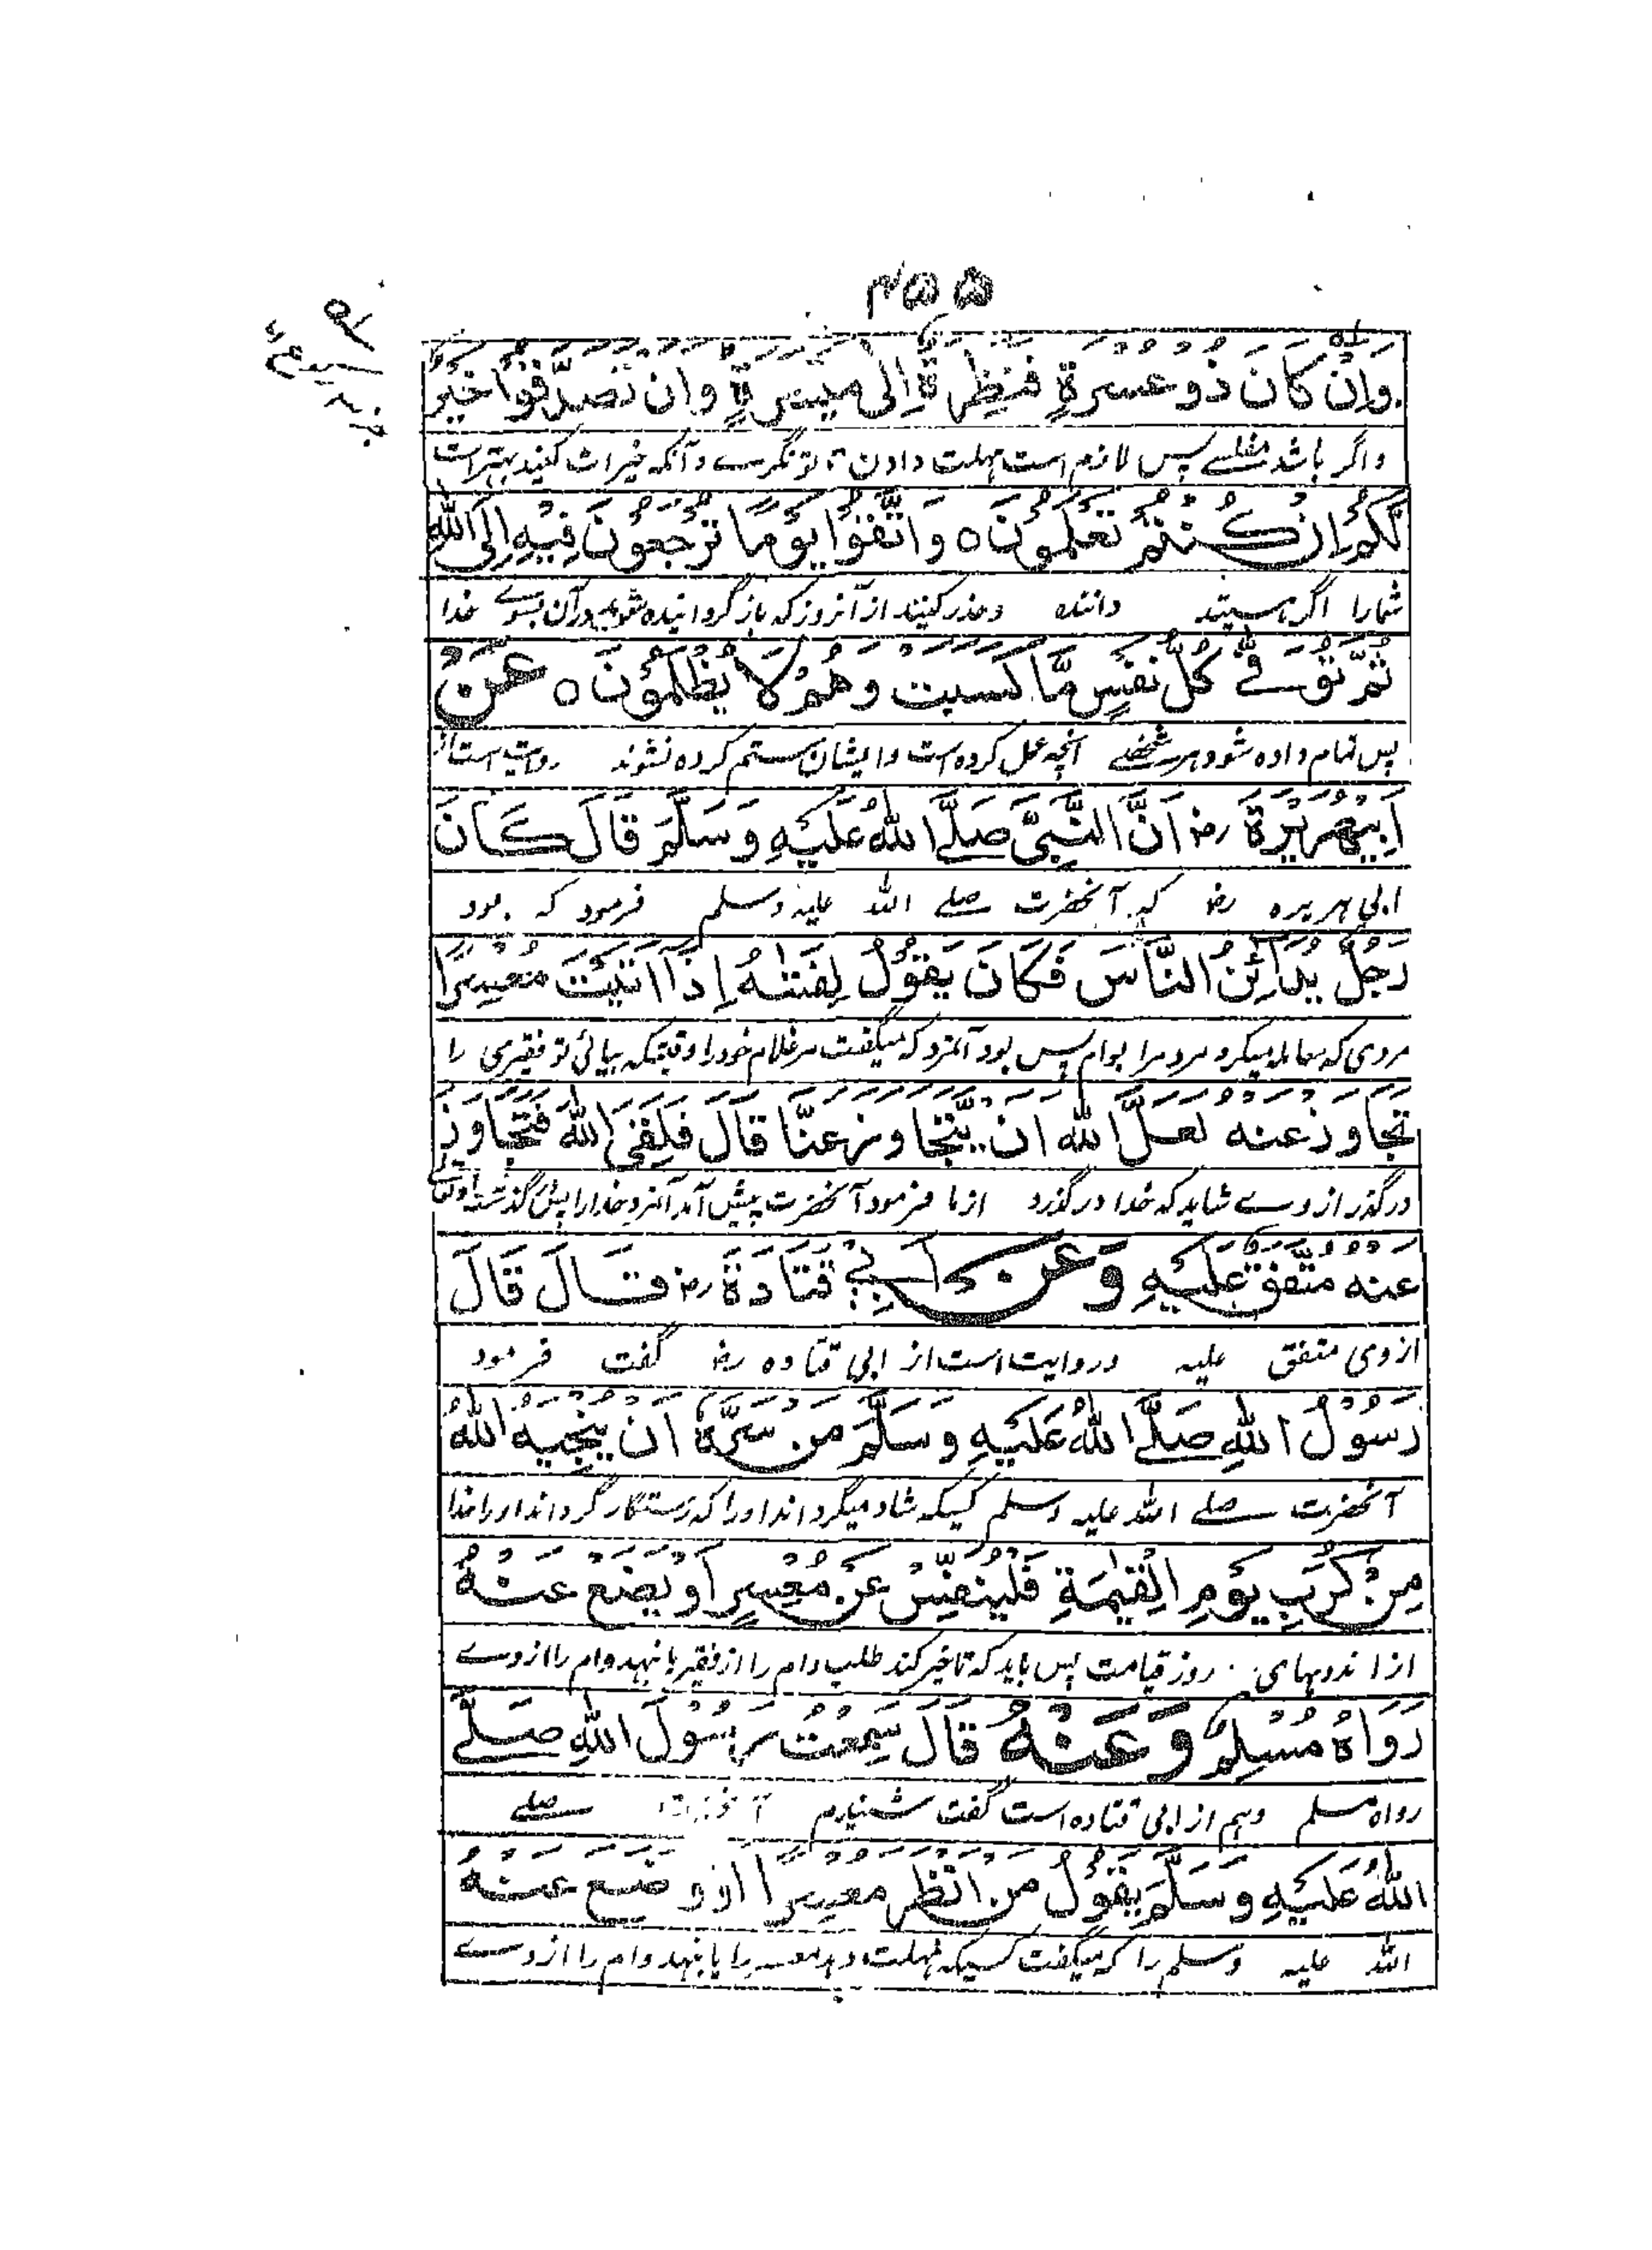 ۴۵۵
وَاِنْ كَانَ ذُوْ عُسْرَةٍ فَنَظِرَةٌ اِلٰى مَيْسَرَةٍ وَاَنْ تَصَدَّقُوْا خَيْرٌ
واگر باشد مفلسے پس لازم است مہلت دادن تا تونگرے و آنکہ خیرات کنید بہتر است
لَّكُمْ اِنْ كُنْتُمْ تَعْلَمُوْنَ ٥ وَاتَّقُوْا يَوْمًا تُرْجَعُوْنَ فِيْهِ اِلَى اللّٰهِ
شمارا اگر ہستید دانندہ وحذر کنید از آنروز کہ باز گردانیدہ شوید درآن بسوے خدا
ثُمَّ تُوَفّٰے كُلُّ نَفْسٍ مَّا كَسَبَتْ وَهُمْ لَا يُظْلَمُوْنَ ٥ عَنْ
پس تمام داده شود ہر شخصے آنچہ عمل کرده است وایشان ستم کرده نشوند روایت است از
اَبِيْ هُرَيْرَةَ رض اَنَّ النَّبِيَّ صَلَّے اللّٰهُ عَلَيْهِ وَسَلَّمَ قَالَ كَانَ
ابی ہریرہ رض کہ آنحضرت صلے اللہ علیہ وسلم فرمود کہ بود
رَجُلٌ يُدَائِنُ النَّاسَ فَكَانَ يَقُوْلُ لِفَتٰىهُ اِذَا اَتَيْتَ مُعْسِرًا
مردی کہ معاملہ میکرد مردمرا بوام پس بود آنمرد کہ میگفت مر غلام خود را وقتیکہ بیائی تو فقیری را
تَجَاوَزْ عَنْهُ لَعَلَّ اللّٰهَ اَنْ يَّتَجَاوَزَ عَنَّا قَالَ فَلَقِیَ اللّٰهَ فَتَجَاوَزَ
درگذر از وے شاید کہ خدا درگذرد از ما فرمود آنحضرت پیش آمد آنمرد خدارا پس گذشت
عَنْهُ مُتَّفَقٌ عَلَيْهِ وَعَنْ اَبِيْ قَتَادَةَ رض قَالَ قَالَ
ازوی متفق علیہ وروایت است از ابی قتاده رض گفت فرمود
رَسُوْلُ اللّٰهِ صَلَّے اللّٰهُ عَلَيْهِ وَسَلَّمَ مَنْ سَرَّهٗ اَنْ يُنْجِيَهُ اللّٰهُ
آنحضرت صلے اللہ علیہ وسلم کسیکہ شاد میگرداند اورا کہ رستگار گرداند اورا خدا
مِنْ كُرَبِ يَوْمِ الْقِيٰمَةِ فَلْيُنَفِّسْ عَنْ مُعْسِرٍ اَوْ يَضَعْ عَنْهُ
از اندوہای روز قیامت پس باید کہ تاخیر کند طلب وام را از فقیر یا بنہد وام را از وے
رَوَاهُ مُسْلِمٌ وَعَنْهُ قَالَ سَمِعْتُ رَسُوْلَ اللّٰهِ صَلَّے
رواه مسلم وہم از ابی قتاده است گفت شنیدم آنحضرت صلے
اللّٰهُ عَلَيْهِ وَسَلَّمَ يَقُوْلُ مَنْ اَنْظَرَ مُعْسِرًا اَوْ وَضَعَ عَنْهُ
اللہ علیہ وسلم را کہ میگفت کسیکہ مہلت دہد معسر را یا بنہد وام را از وے